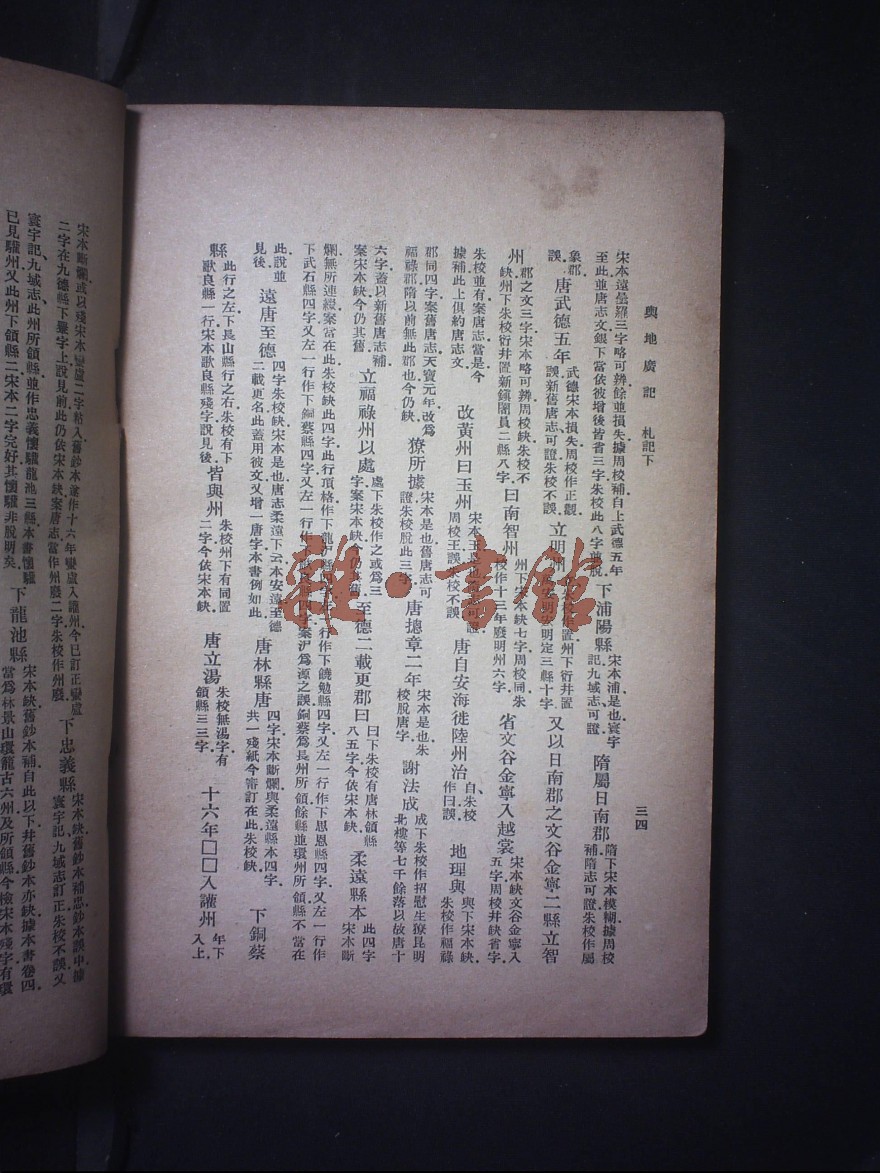 輿地廣記　札記下
三四
宋本遠曇羅三字略可辨餘並損失據周校補自上武德五年
至此並唐志文銀下當依彼增後皆省三字朱校此八字剜脫
下浦陽縣
宋本浦是也寰宇
記九域志可證
隋屬日南郡
隋下宋本模糊據周校
補隋志可證朱校作屬
象郡
誤
唐武德五年
武德宋本損失周校作正觀
誤新舊唐志可證朱校不誤
立明州
朱校作置州下衍井置
明定三縣十字
又以日南郡之文谷金寧二縣立智
州
郡之文三字宋本略可辨周校缺朱校不
缺州下朱校衍井置新鎮闍員二縣八字
曰南智州
州下宋本缺七字周校同朱
校作十三年廢明州六字
省文谷金寧入越裳
宋本缺文谷金寧入
五字周校并缺省字
朱校並有案唐志當是今
據補此上俱約唐志文
改黃州曰玉州
宋本王是也
周校王誤朱校不誤
唐自安海徙陸州治
自朱校
作曰誤
地理與
與下宋本缺
朱校作福祿
郡同四字案舊唐志天寶元年改爲
福祿郡隋以前無此郡也今仍缺
獠所據
宋本是也舊唐志可
證朱校脫此三字
唐摠章二年
宋本是也朱
校脫唐字
謝法成
成下朱校作招慰生獠昆明
北樓等七千餘落以故唐十
六字蓋以新舊唐志補
案宋本缺今仍其舊
立福祿州以處
處下朱校作之或爲三
字案宋本缺今仍其舊
至德二載更郡曰
曰下朱校有唐林領縣
八五字今依宋本缺
柔遠縣本
此四字
宋本斷
爛無所連綴案當在此朱校缺此四字此行頂格作下龍池縣四字又左一行作下饒勉縣四字又左一行作下思恩縣四字又左一行作
下武石縣四字又左一行作下銅蔡縣四字又左一行作
四字案沪爲源之誤銅蔡爲長州所領餘縣並環州所領縣不當在
此說並
見後
遠唐至德
四字朱校缺宋本是也唐志柔遠下云本安遠至德
二載更名此蓋用彼文又增一唐字本書例如此
唐林縣唐
四字宋本斷爛與柔遠縣本四字
共一殘紙今審訂在此朱校缺
下銅蔡
縣
此行之左下長山縣行之右朱校有下
歌良縣一行宋本歌良縣殘字說見後
皆與州
朱校州下有同置
二字今依宋本缺
唐立湯
朱校無湯字有
領縣三三字
十六年□□入讙州
年下
入上
宋本斷爛或以殘宋本巒處二字粘入舊鈔本遂作十六年巒處入讙州今已訂正巒處
二字在九德縣下巒字上說見前此仍依宋本缺案唐志當作州廢二字朱校作州廢
下忠義縣
宋本缺舊鈔本補忠鈔本誤中據
寰宇記九域志訂正朱校不誤又
寰宇記九域志此州所領縣並作忠義懷驩龍池三縣本書懷驩
已見驩州又此州下領縣二宋本二字完好其懷驩非脫明矣
下龍池縣
宋本缺舊鈔本補自此以下并舊鈔本亦缺據本書卷四
當爲林景山環龍古六州及所領縣今檢宋本殘字有環
雜·書館